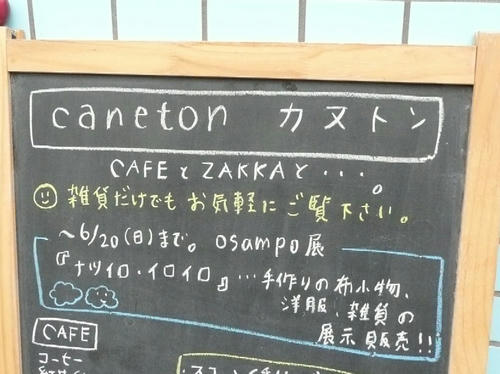 caneton カヌトン
CAFEとZAKKAと・・・。
雑貨だけでもお気軽にご覧下さい。
～6/20(日)まで。osampo展
『ナツイロ・イロイロ』…手作りの布小物、
洋服、雑貨の
展示販売!!
CAFE
コーヒー